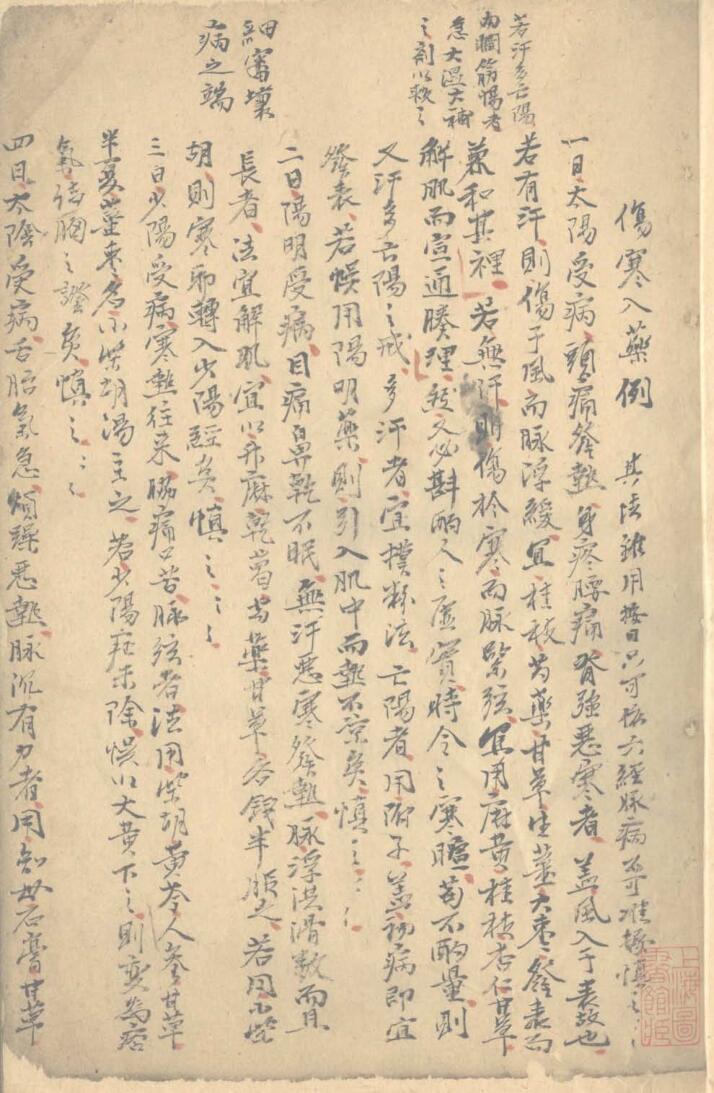 傷寒入藥例　其法雖用按日只可依六經脉病不可准據慎之〻〻
一日太陽受病頭痛發熱身疼腰痛脊强惡寒者盖風入于表故也
若有汗則傷于風而脉浮緩宜桂枝芍藥甘草生薑大棗發表而
兼和其裡若無汗則傷於寒而脉緊弦宜用麻黄桂枝杏仁甘草
解肌而宣通腠理然又必斟酌人之虛實時令之寒暄苟不酌量則
又汗多亡陽之戒多汗者宜撲粉法亡陽者用附子盖初病即宜
發表若悞用陽明藥則引入肌中而熱不凉矣慎之〻〻
二日陽明受病目痛鼻乾不眠無汗惡寒發熱脉浮洪滑數而且
長者法宜解肌宜以升麻乾葛芍藥甘草各錢半服之若用小柴
胡則寒邪轉入少陽經矣慎之〻〻
三日少陽受病寒熱往来脇痛口苦脉弦者法用柴胡黄芩人參甘草
半夏薑棗名小柴胡湯主之若少陽症未除悞以大黄下之則變為痞
氣結胸之證矣慎之〻〻
四日太陰受病舌胎氣急煩躁惡熱脉沉有力者用知母石膏甘草
若汗多亡陽
肉瞤筋惕者
急大溫大補
之劑以救之
細審壞
病之端
上海圖
書館藏